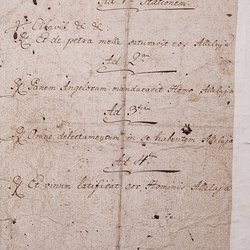 Ad 1 Stationem.
V. Cibavit &c &c
R Et de petra melle saturavit eos Alleluja
Ad 2am
R Panem Angelorum manducavit Homo Alleluja
Ad 3tiam
R Omne delectamentum in se habentem Alleluja
Ad 4tam
R Et vinum laetificat cor Hominis Alleluja